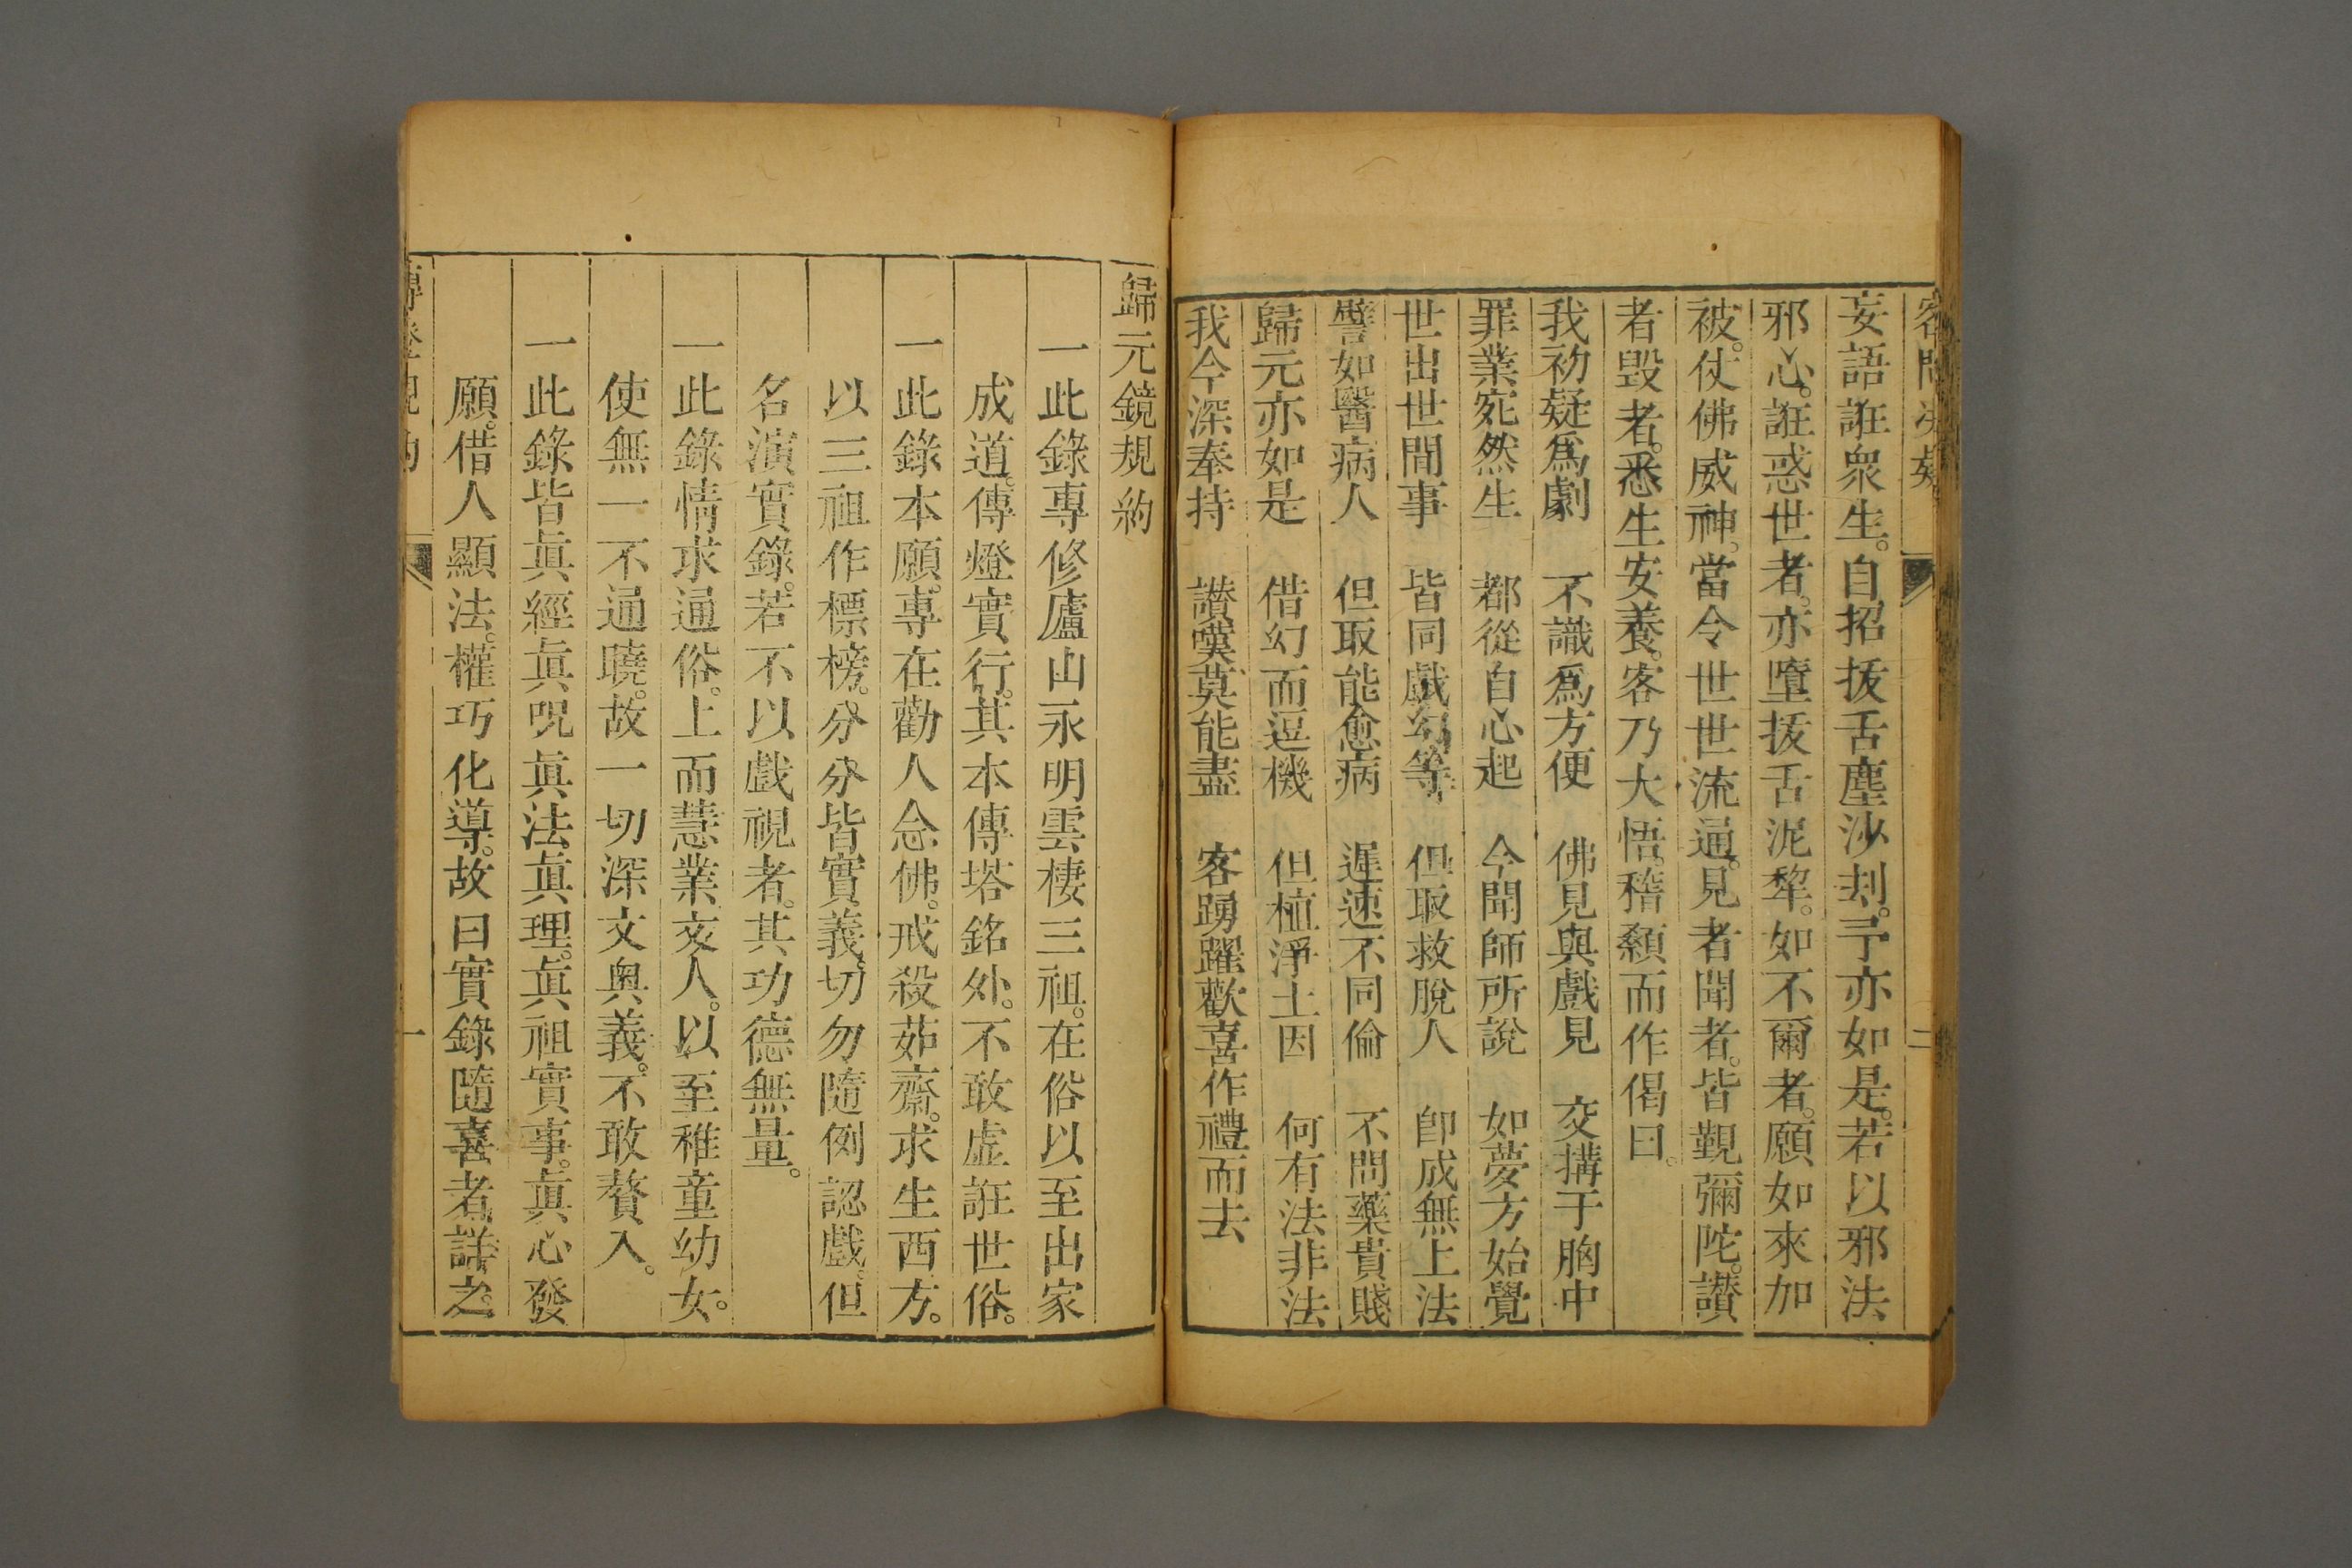 客問决疑
二
妄語誑衆生。自招拔舌塵沙刦。予亦如是。若以邪法
邪心。誑惑世者。亦墮拔舌泥犂。如不爾者。願如來加
被。仗佛威神。當令世世流通。見者聞者。皆覲彌陀。讃
者毁者。悉生安養。客乃大悟。稽顙而作偈曰。
我初疑爲劇　不識爲方便　佛見與戲見　交搆于胸中
罪業宛然生　都從自心起　今聞師所說　如夢方始覺
世出世間事　皆同戲幻等　但取救脫人　卽成無上法
譬如醫病人　但取能愈病　遲速不同倫　不問藥貴賤
歸元亦如是　借幻而逗機　但植淨土因　何有法非法
我今深奉持　讃嘆莫能盡　客踴躍歡喜作禮而去
歸元鏡規約
一此錄專修廬山永明雲棲三祖。在俗以至出家
成道。傳燈實行。其本傳塔銘外。不敢虛誑世俗。
一此錄本願。專在勸人念佛。戒殺茹齋。求生西方。
以三祖作標榜。分分皆實義。切勿隨例認戲。但
名演實錄。若不以戲視者。其功德無量。
一此錄情求通俗。上而慧業文人。以至稚童幼女。
使無一不通曉。故一切深文奧義。不敢贅入。
一此錄皆眞經眞呪眞法眞理。眞祖實事。眞心發
願。借人顯法。權巧化導。故曰實錄隨喜者詳之。
規約
一